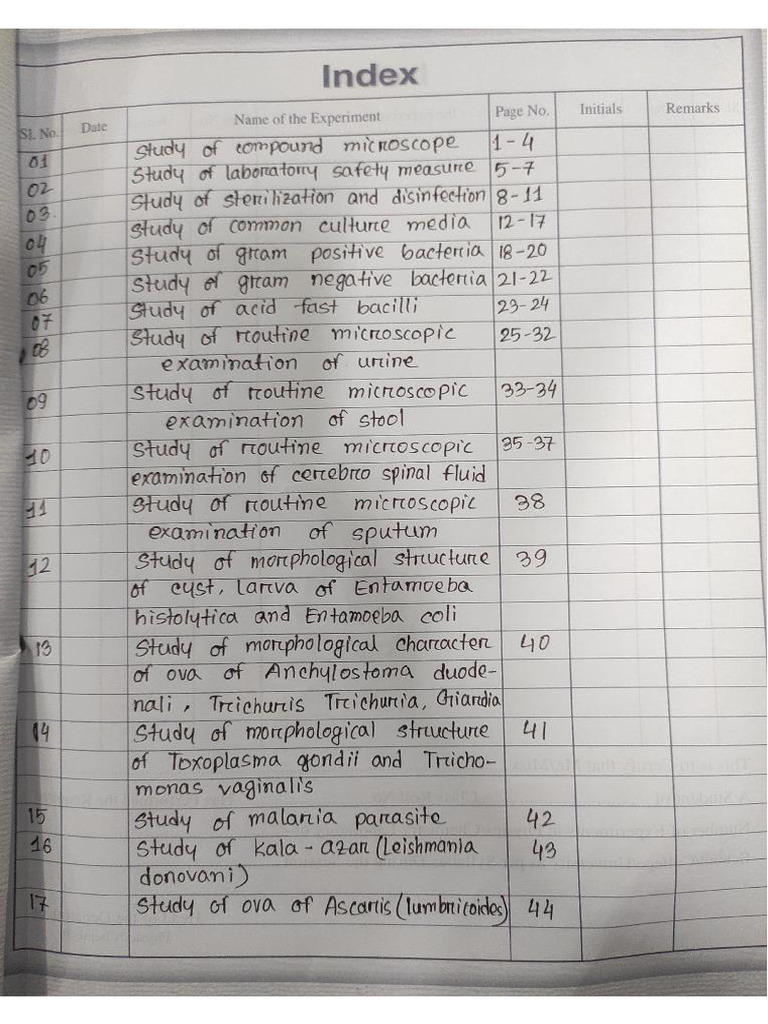 Index
Sl. No. Date Name of the Experiment Page No. Initials Remarks
01 Study of compound microscope 1-4
02 Study of laboratory safety measure 5-7
03 Study of sterilization and disinfection 8-11
04 Study of common culture media 12-17
05 Study of gram positive bacteria 18-20
06 Study of gram negative bacteria 21-22
07 Study of acid fast bacilli 23-24
08 Study of routine microscopic 25-32
examination of urine
09 Study of routine microscopic 33-34
examination of stool
10 Study of routine microscopic 35-37
examination of cerebro spinal fluid
11 Study of routine microscopic 38
examination of sputum
12 Study of morphological structure 39
of cyst, larva of Entamoeba
histolytica and Entamoeba coli
13 Study of morphological character 40
of ova of Anchylostoma duode-
nali, Trichuris Trichuria, Giardia
14 Study of morphological structure 41
of Toxoplasma gondii and Tricho-
monas vaginalis
15 Study of malaria parasite 42
16 Study of kala-azar (Leishmania 43
donovani)
17 Study of ova of Ascaris (lumbricoides) 44